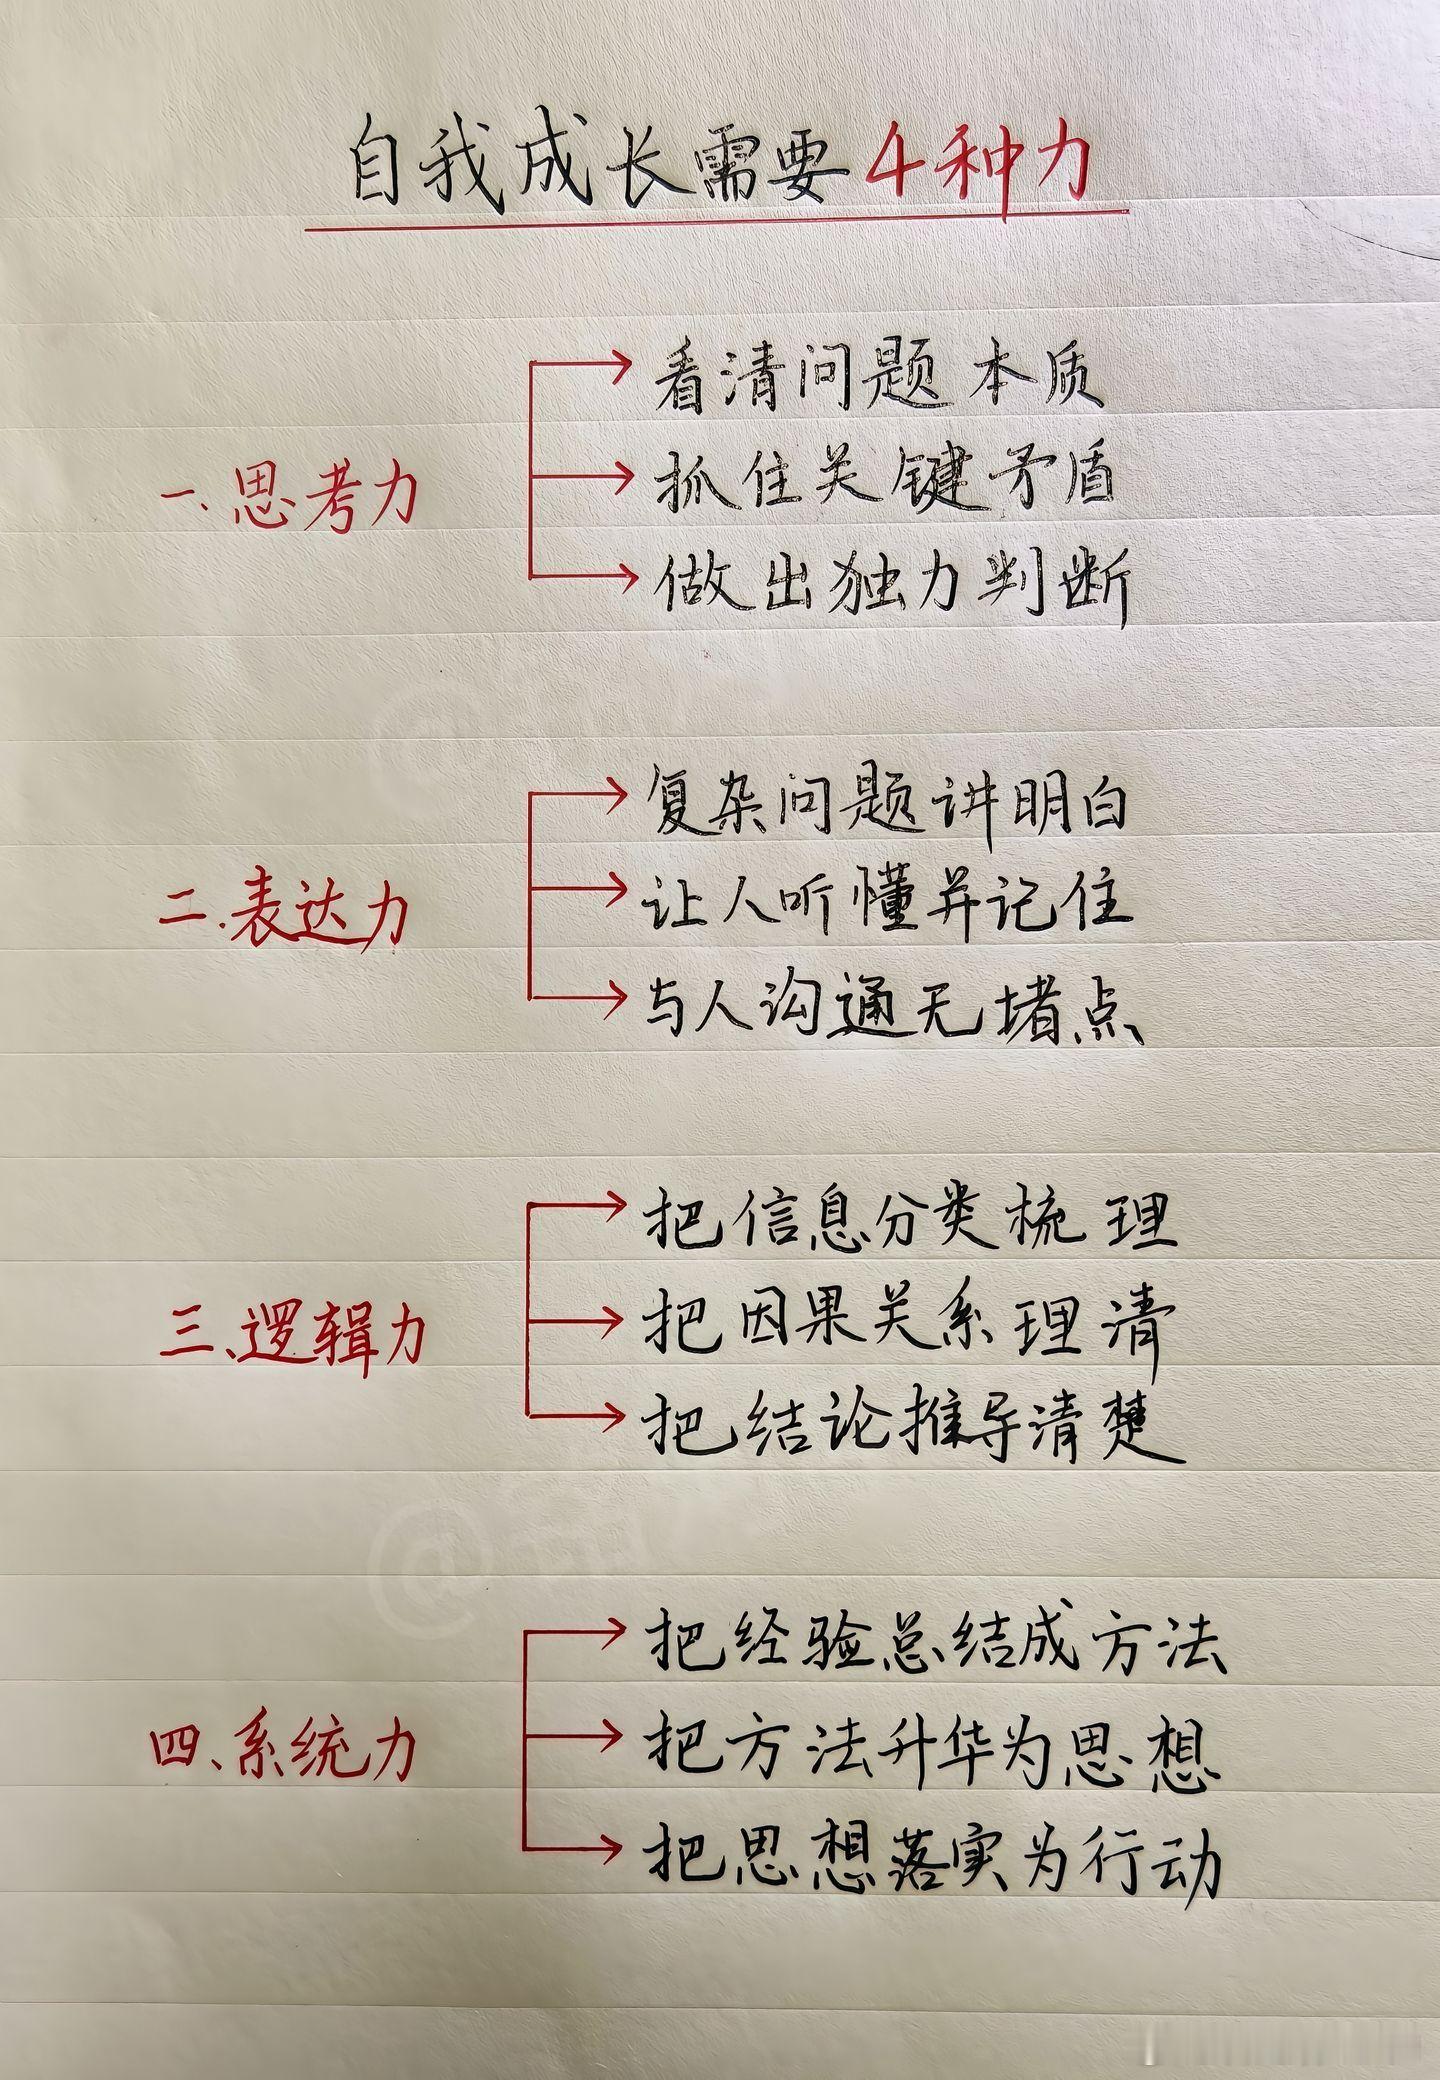 自我成长需要4种力
一、思考力
看清问题本质
抓住关键矛盾
做出独力判断
二、表达力
复杂问题讲明白
让人听懂并记住
与人沟通无堵点
三、逻辑力
把信息分类梳理
把因果关系理清
把结论推导清楚
四、系统力
把经验总结成方法
把方法升华为思想
把思想落实为行动